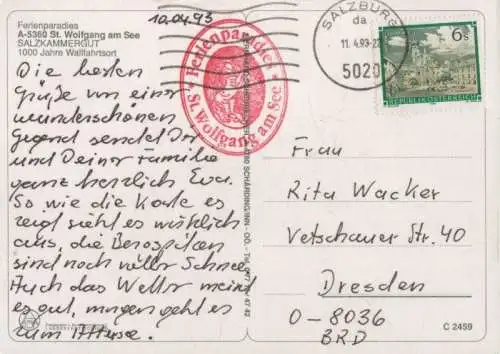 Ferienparadies
A-5360 St. Wolfgang am See
SALZKAMMERGUT
1000 Jahre Wallfahrtsort
10.04.93
Die besten
Grüße von einer
wunderschönen
Gegend sendet Dir
und Deiner Familie
ganz herzlich Eva.
So wie die Karte es
zeigt sieht es wirklich
aus, die Bergspitzen
sind noch voller Schnee.
Auch das Wetter meint
es gut, morgen geht es
zum Attersee.
Ferienparadies
St. Wolfgang am See
SALZBURG
da
11. 4.93-2
5020
6s
REPUBLIK ÖSTERREICH
SCHÄRDING/INN - OÖ. - Tel.
Frau
Rita Wacker
Vetschauer Str. 40
Dresden
O-8036
BRD
C 2459